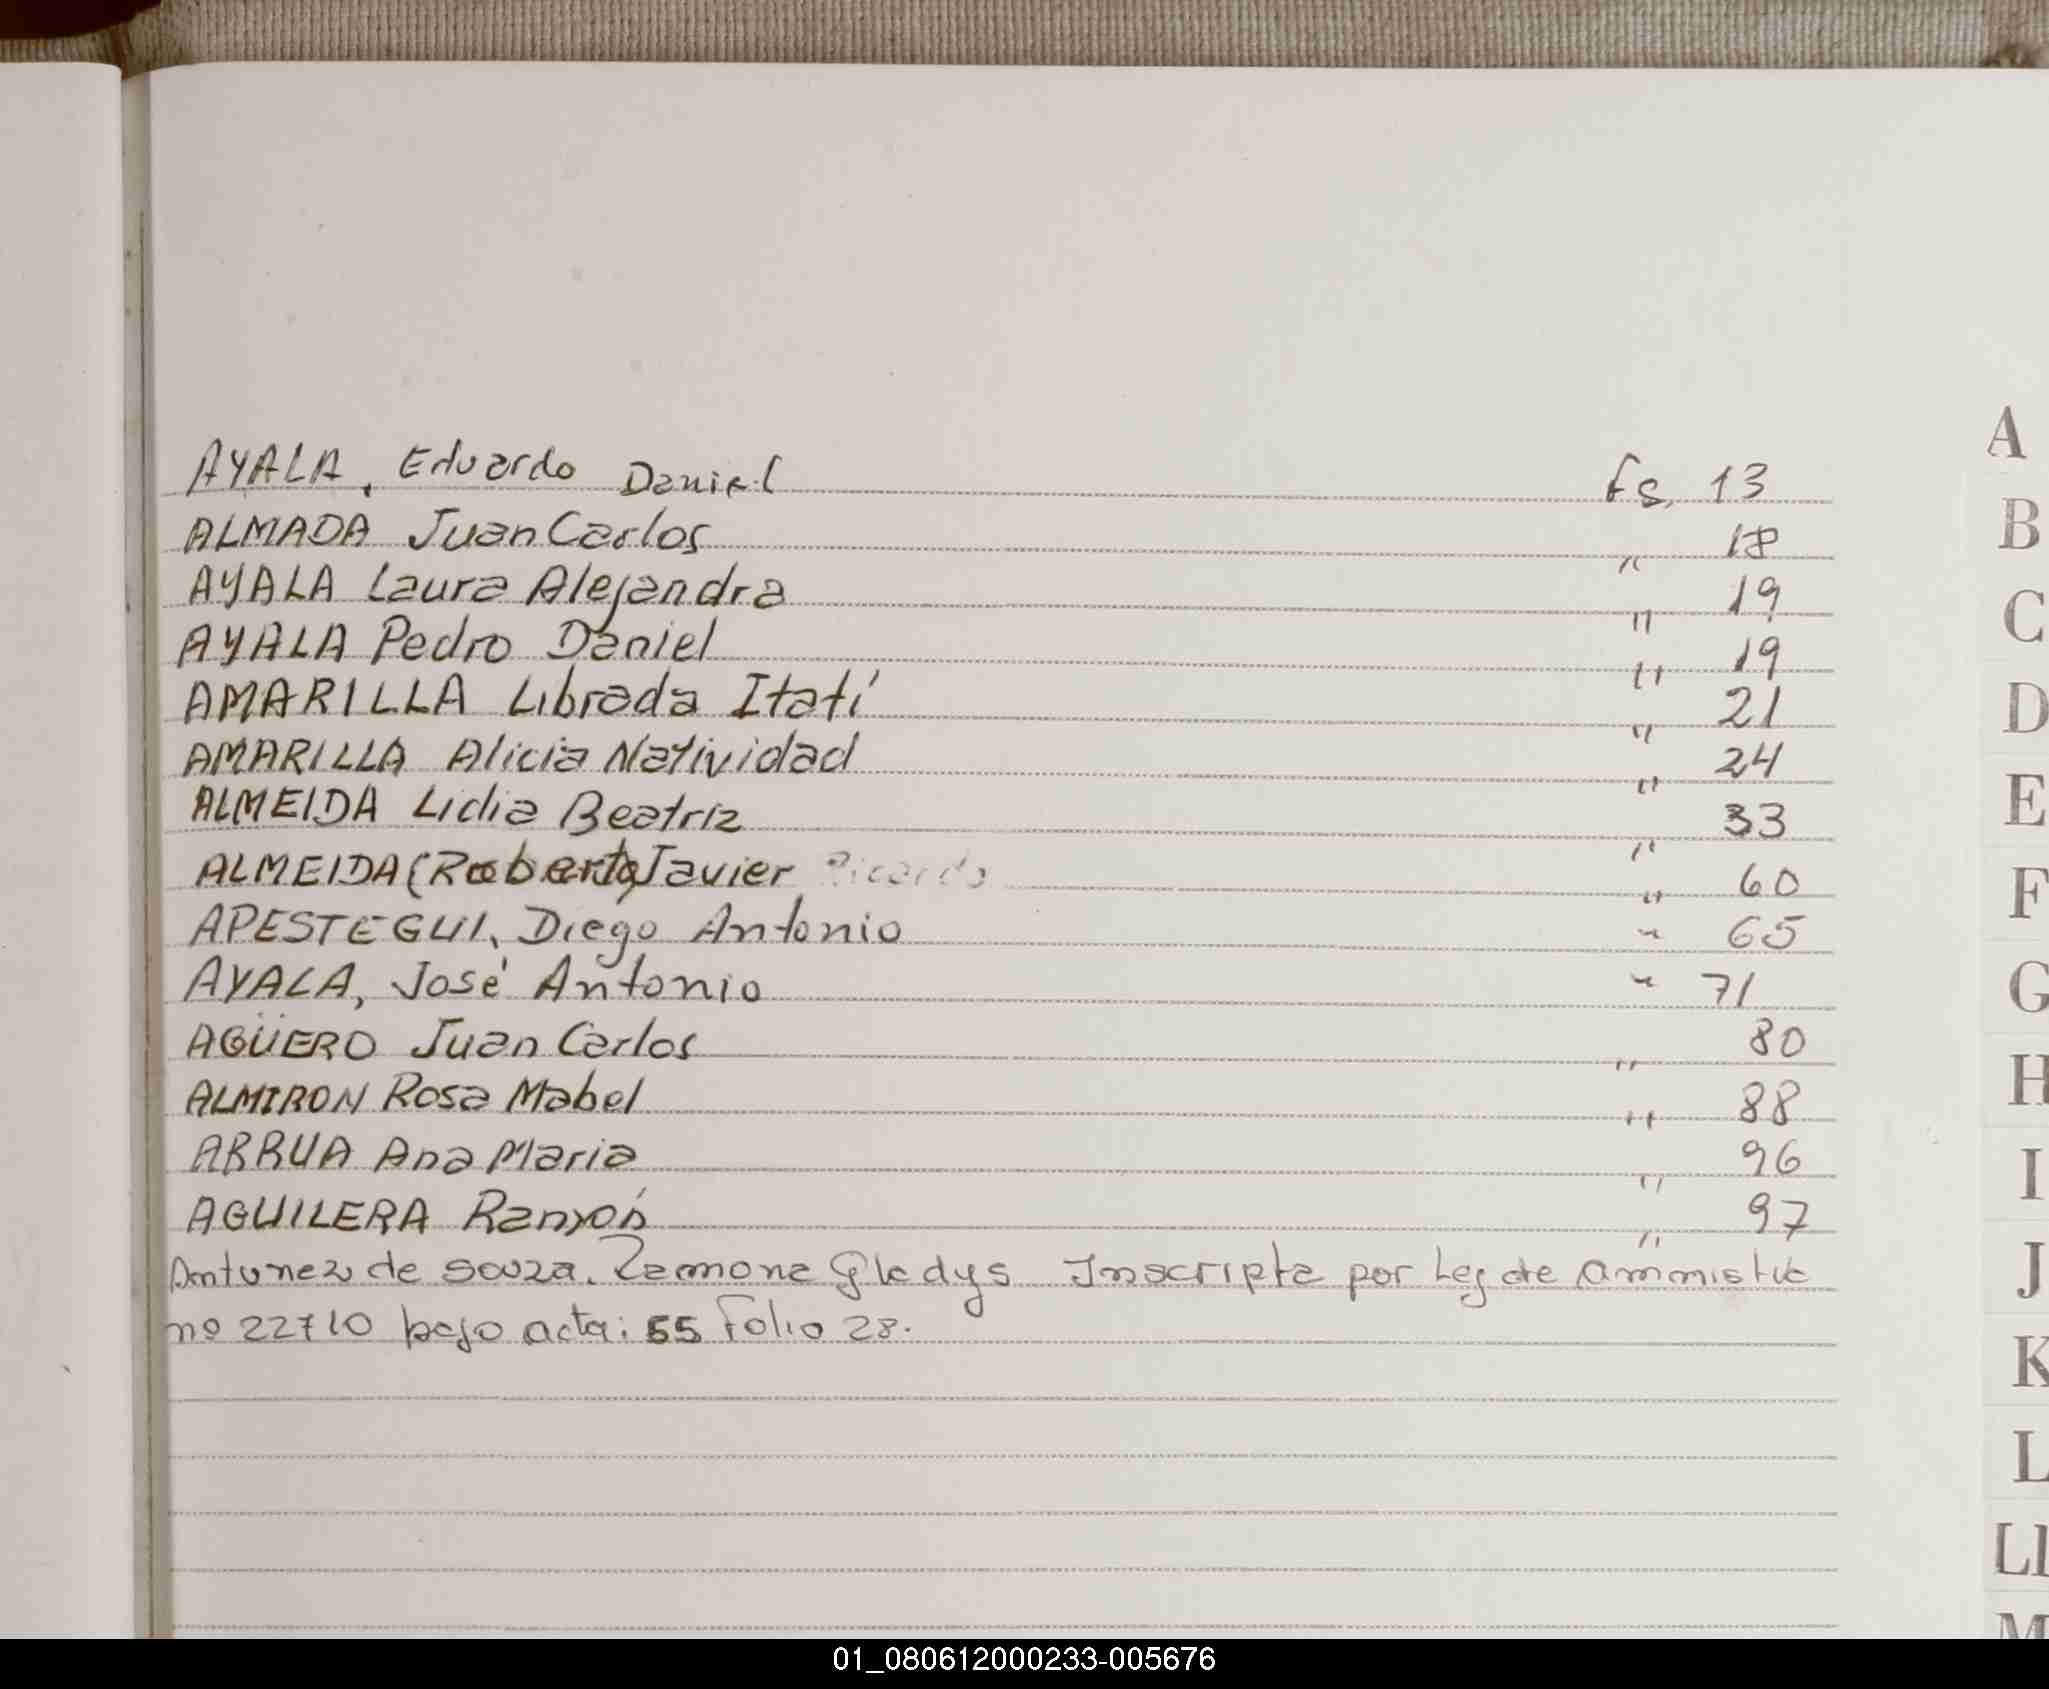 AYALA, Eduardo Daniel fs, 13
ALMADA Juan Carlos " 18
AYALA Laura Alejandra " 19
AYALA Pedro Daniel " 19
AMARILLA Librada Itatí " 21
AMARILLA Alicia Natividad " 24
ALMEIDA Lidia Beatriz " 33
ALMEIDA (Roberto) Javier Ricardo " 60
APESTEGUI, Diego Antonio " 65
AYALA, José Antonio " 71
AGÜERO Juan Carlos " 80
ALMIRON Rosa Mabel " 88
ARRUA Ana Maria " 96
AGUILERA Ramón " 97
Antunez de souza. Ramona Gladys Inscripta por Ley de ammistia
nº 22710 bajo acta: 55 Folio 28.
A
B
C
D
E
F
G
H
I
J
K
L
Ll
M
01_080612000233-005676